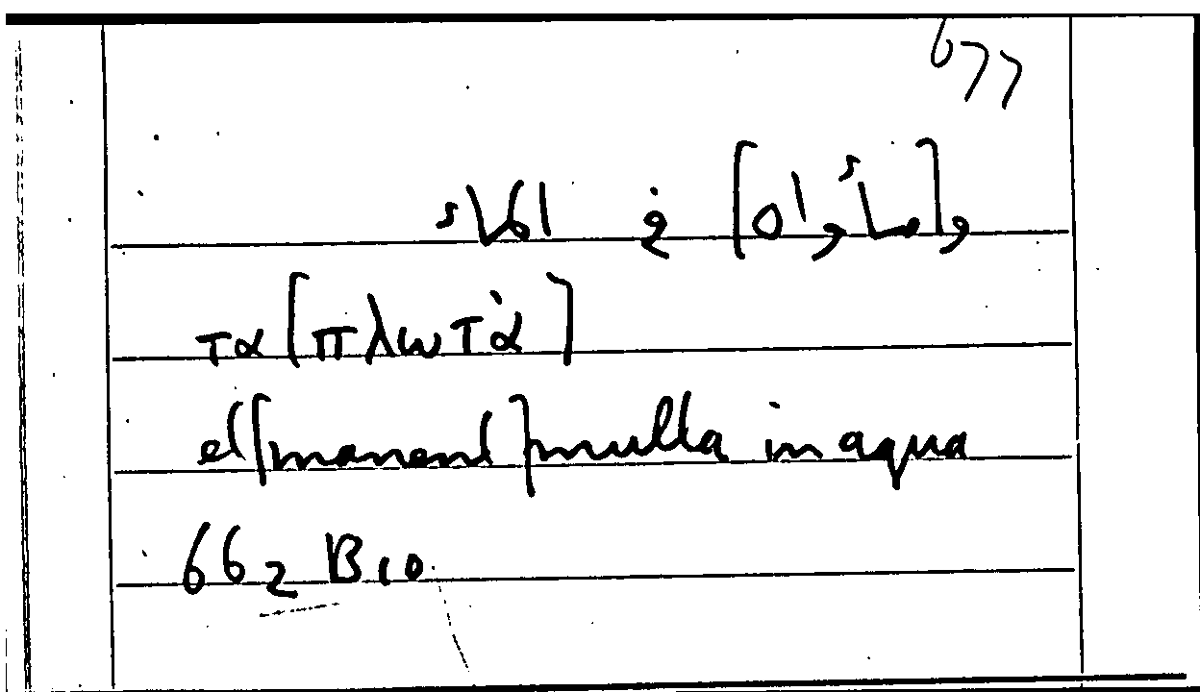 677
و[مأواه] في الماء
τα[πλωτὰ]
et[manent]multa in aqua
662 B10